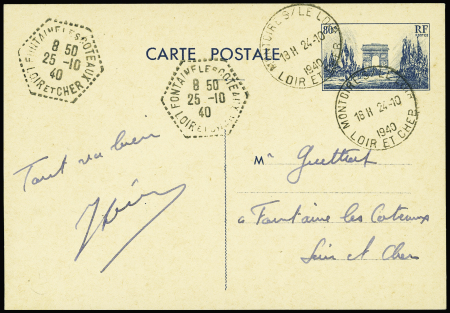 FONTAINE LES COTEAUX
8 50
25 -10
40
LOIR ET CHER
FONTAINE LES COTEAUX
8 50
25 -10
40
LOIR ET CHER
CARTE POSTALE
MONTOIRE S/LE LOIR
18H 24-10
1940
LOIR ET CHER
80c
RF
18H 24-10
1940
LOIR ET CHER
Tout va bien
M
à Fontaine les Coteaux
Loir et Cher